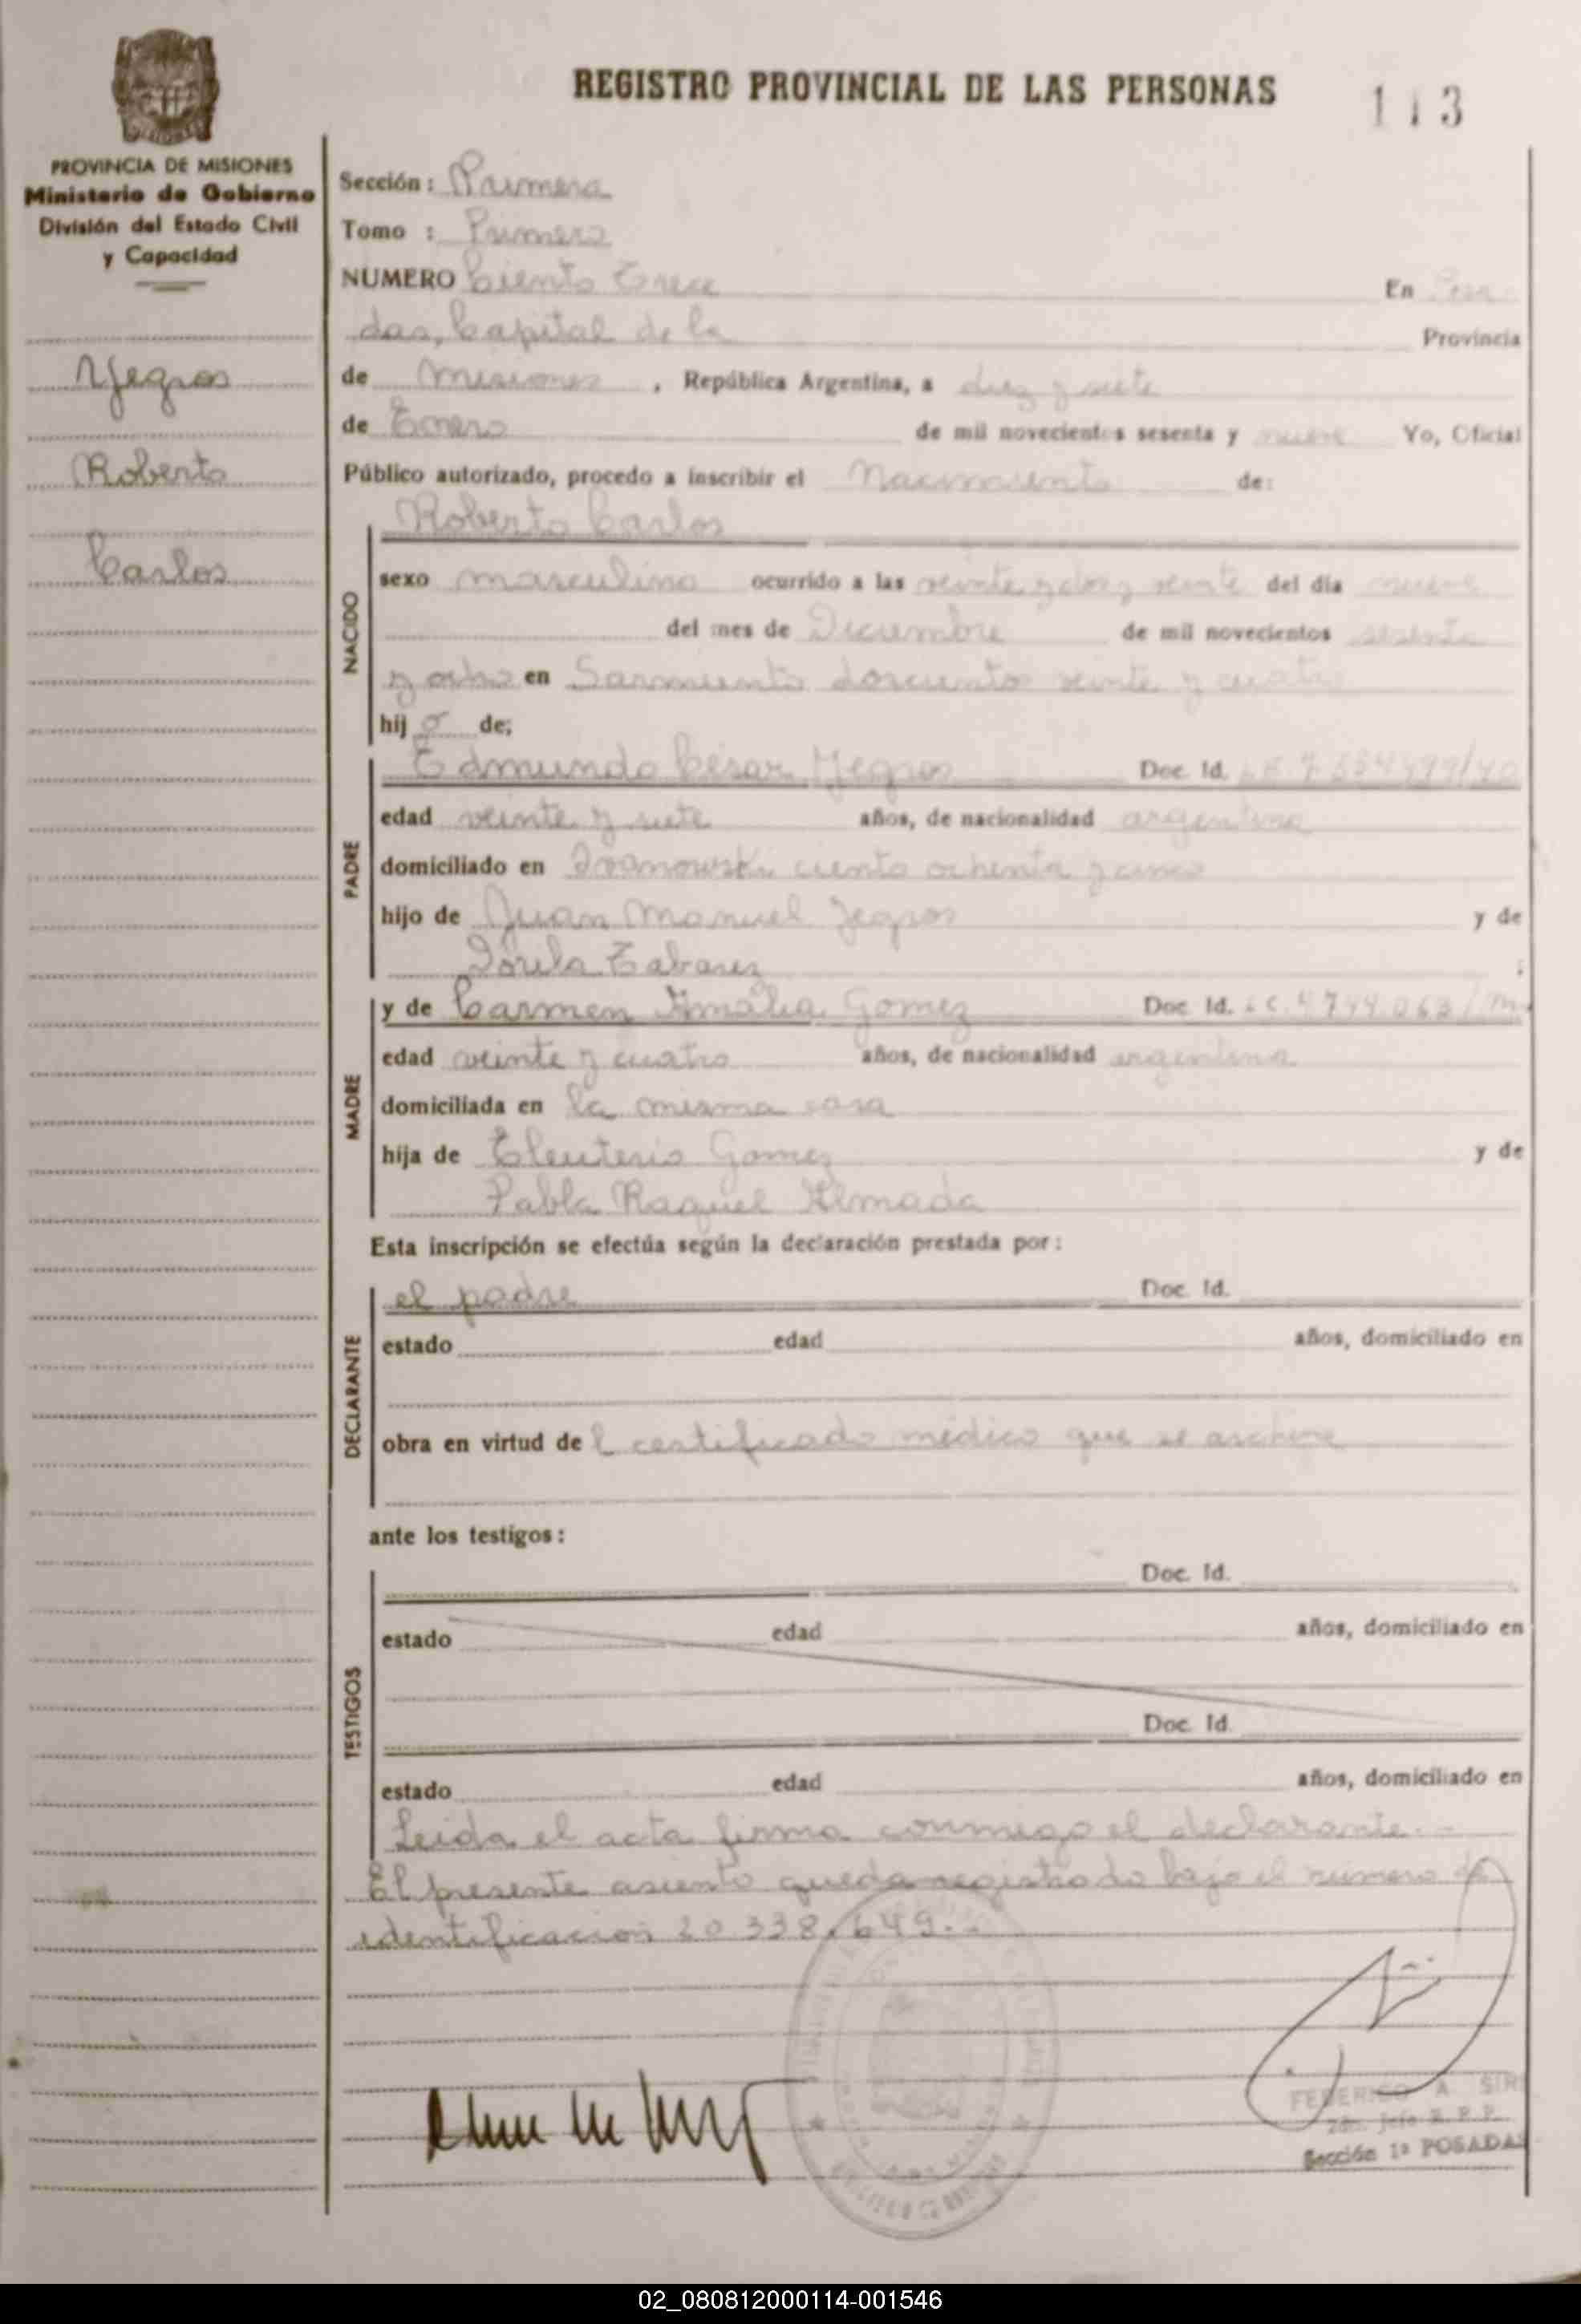 REGISTRO PROVINCIAL DE LAS PERSONAS
113
PROVINCIA DE MISIONES
Ministerio de Gobierno
División del Estado Civil
y Capacidad
Yegros
Roberto
Carlos
Sección: Primera
Tomo : Primero
NUMERO Ciento Trece En Posa
das, Capital de la Provincia
de Misiones, República Argentina, a diez y siete
de Enero de mil novecientos sesenta y nueve Yo, Oficial
Público autorizado, procedo a inscribir el Nacimiento de:
NACIDO
Roberto Carlos
sexo masculino ocurrido a las veinte y dos y veinte del día nueve
del mes de Diciembre de mil novecientos sesenta
y ocho en Sarmiento doscientos veinte y cuatro
hijo de;
PADRE
Edmundo César Yegros Doc. Id.
edad veinte y siete años, de nacionalidad argentina
domiciliado en Ivanowski ciento ochenta y cinco
hijo de Juan Manuel Yegros y de
Tabarez
MADRE
y de Carmen Amalia Gomez Doc. Id. LC. 4744.063
edad veinte y cuatro años, de nacionalidad argentina
domiciliada en la misma casa
hija de Eleuterio Gomez y de
Pabla Raquel Almada
Esta inscripción se efectúa según la declaración prestada por:
DECLARANTE
el padre Doc. Id.
estado edad años, domiciliado en
obra en virtud del certificado médico que se archive
ante los testigos:
TESTIGOS
Doc. Id.
estado edad años, domiciliado en
Doc. Id.
estado edad años, domiciliado en
Leida el acta firma conmigo el declarante.-
El presente asiento queda registrado bajo el número de
identificación 20.338.649.-
FEDERICO A.
2do. Jefe R.P.P.
Sección 1ª POSADAS
02_080812000114-001546